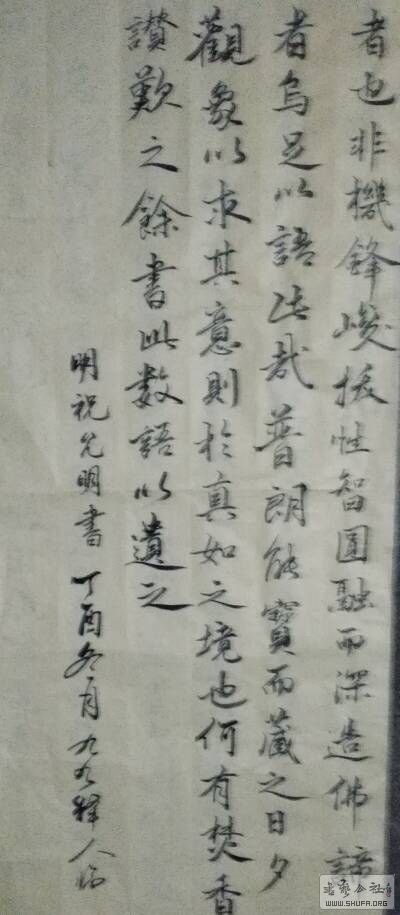 者也非機鋒峻拔性智圓融而深造佛諦
者烏足以語此哉普朗能寶而藏之日夕
觀象以求其意則於真如之境也何有焚香
讃歎之餘書此數語以遺之
明祝允明書 丁酉冬月九九釋人临
WWW.SHUFA.ORG